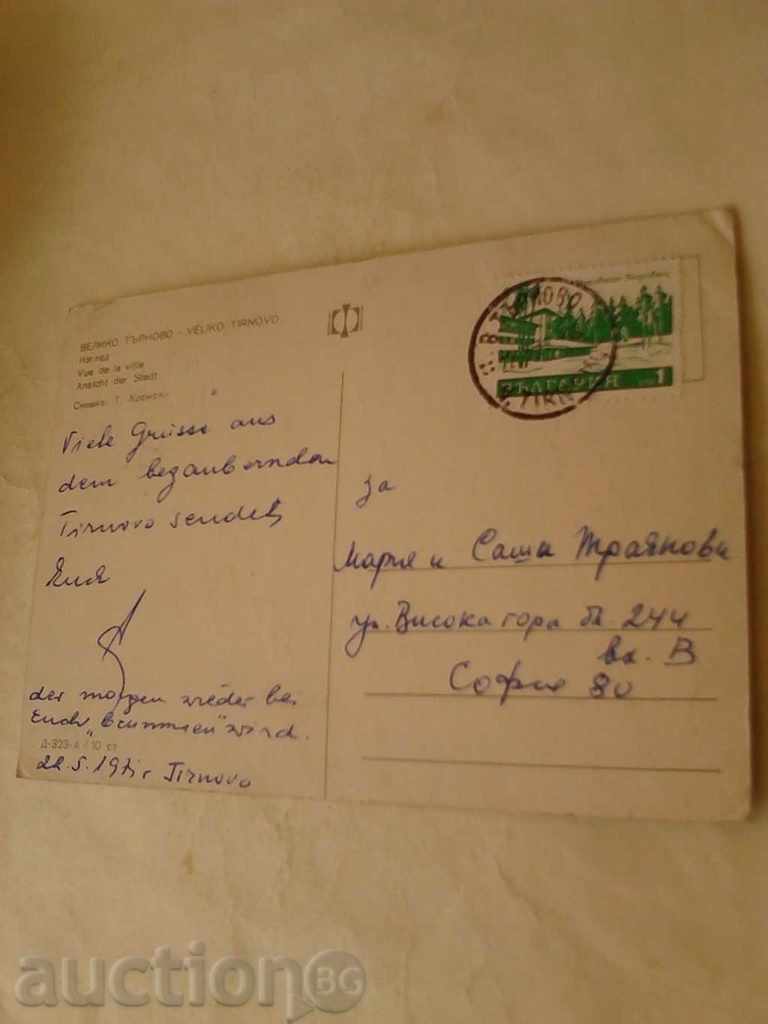 ВЕЛИКО ТЪРНОВО - VELIKO TIRNOVO
Изглед
Vue de la ville
Ansicht der Stadt
Снимка: Т.
Viele Grüsse aus
dem bezaubernden
Tirnovo sendet
der morgen wieder bei
Euch "brummen" wird.
Д-323-А / 10 ст
22.5.1971 г Tirnovo
В. ТЪРНОВО
БЪЛГАРИЯ 1
За
Мария и Саши Траянови
ул. Висока гора бл. 244
вх. В
София 80
auctionBG